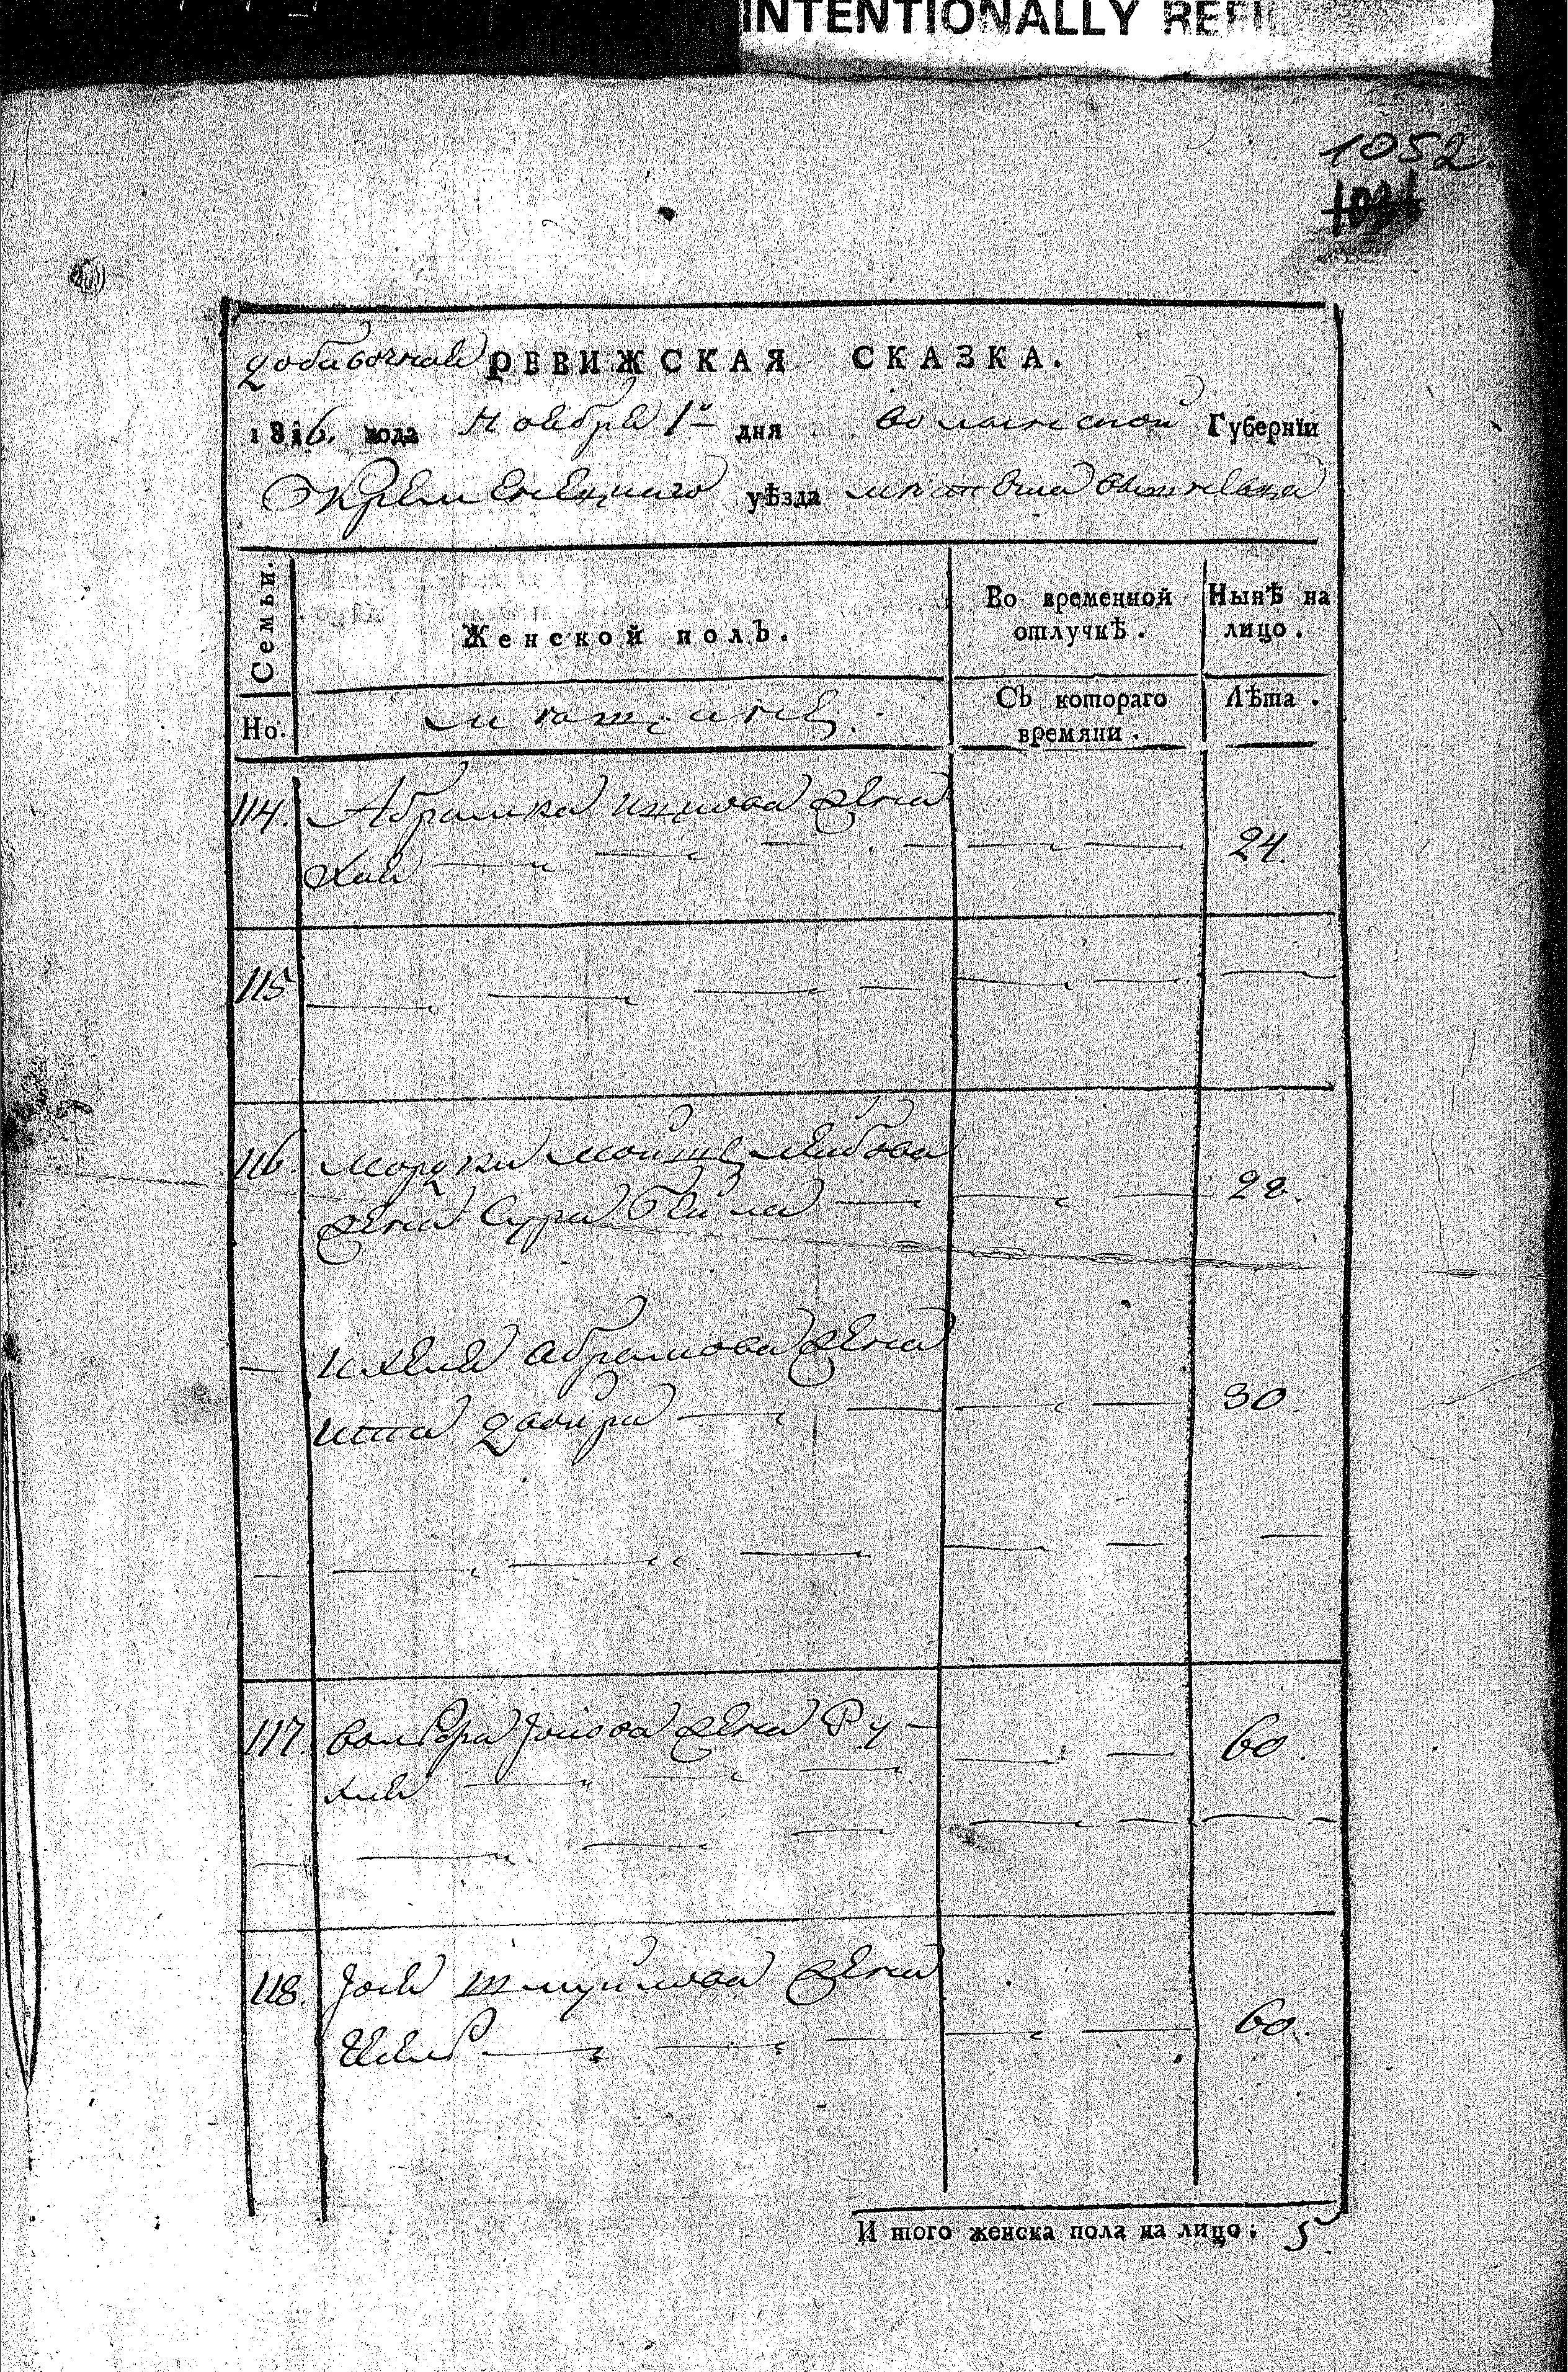 INTENTIONALLY REFI
1052.
добавочная РЕВИЖСКАЯ СКАЗКА.
1816. года Ноября 1го дня волынской Губернїи
Кременецкаго уѣзда местечка вышневца
Семьи.
Женской полЪ.
Во временной отлучкѣ.
Нынѣ на лицо.
Но.
мещане.
СЪ котораго времяни.
Лѣта.
114. Абрамка ицкова жена
Хая 24.
115
116. Мордки Мойше лейбова
жена Сура бейла 28.
ихеля абрамова жена
ита двойра 30
117. вольфа жена Ру-
хля 60.
118. Joся шмуйлова жена
60.
И того женска пола на лицо: 5